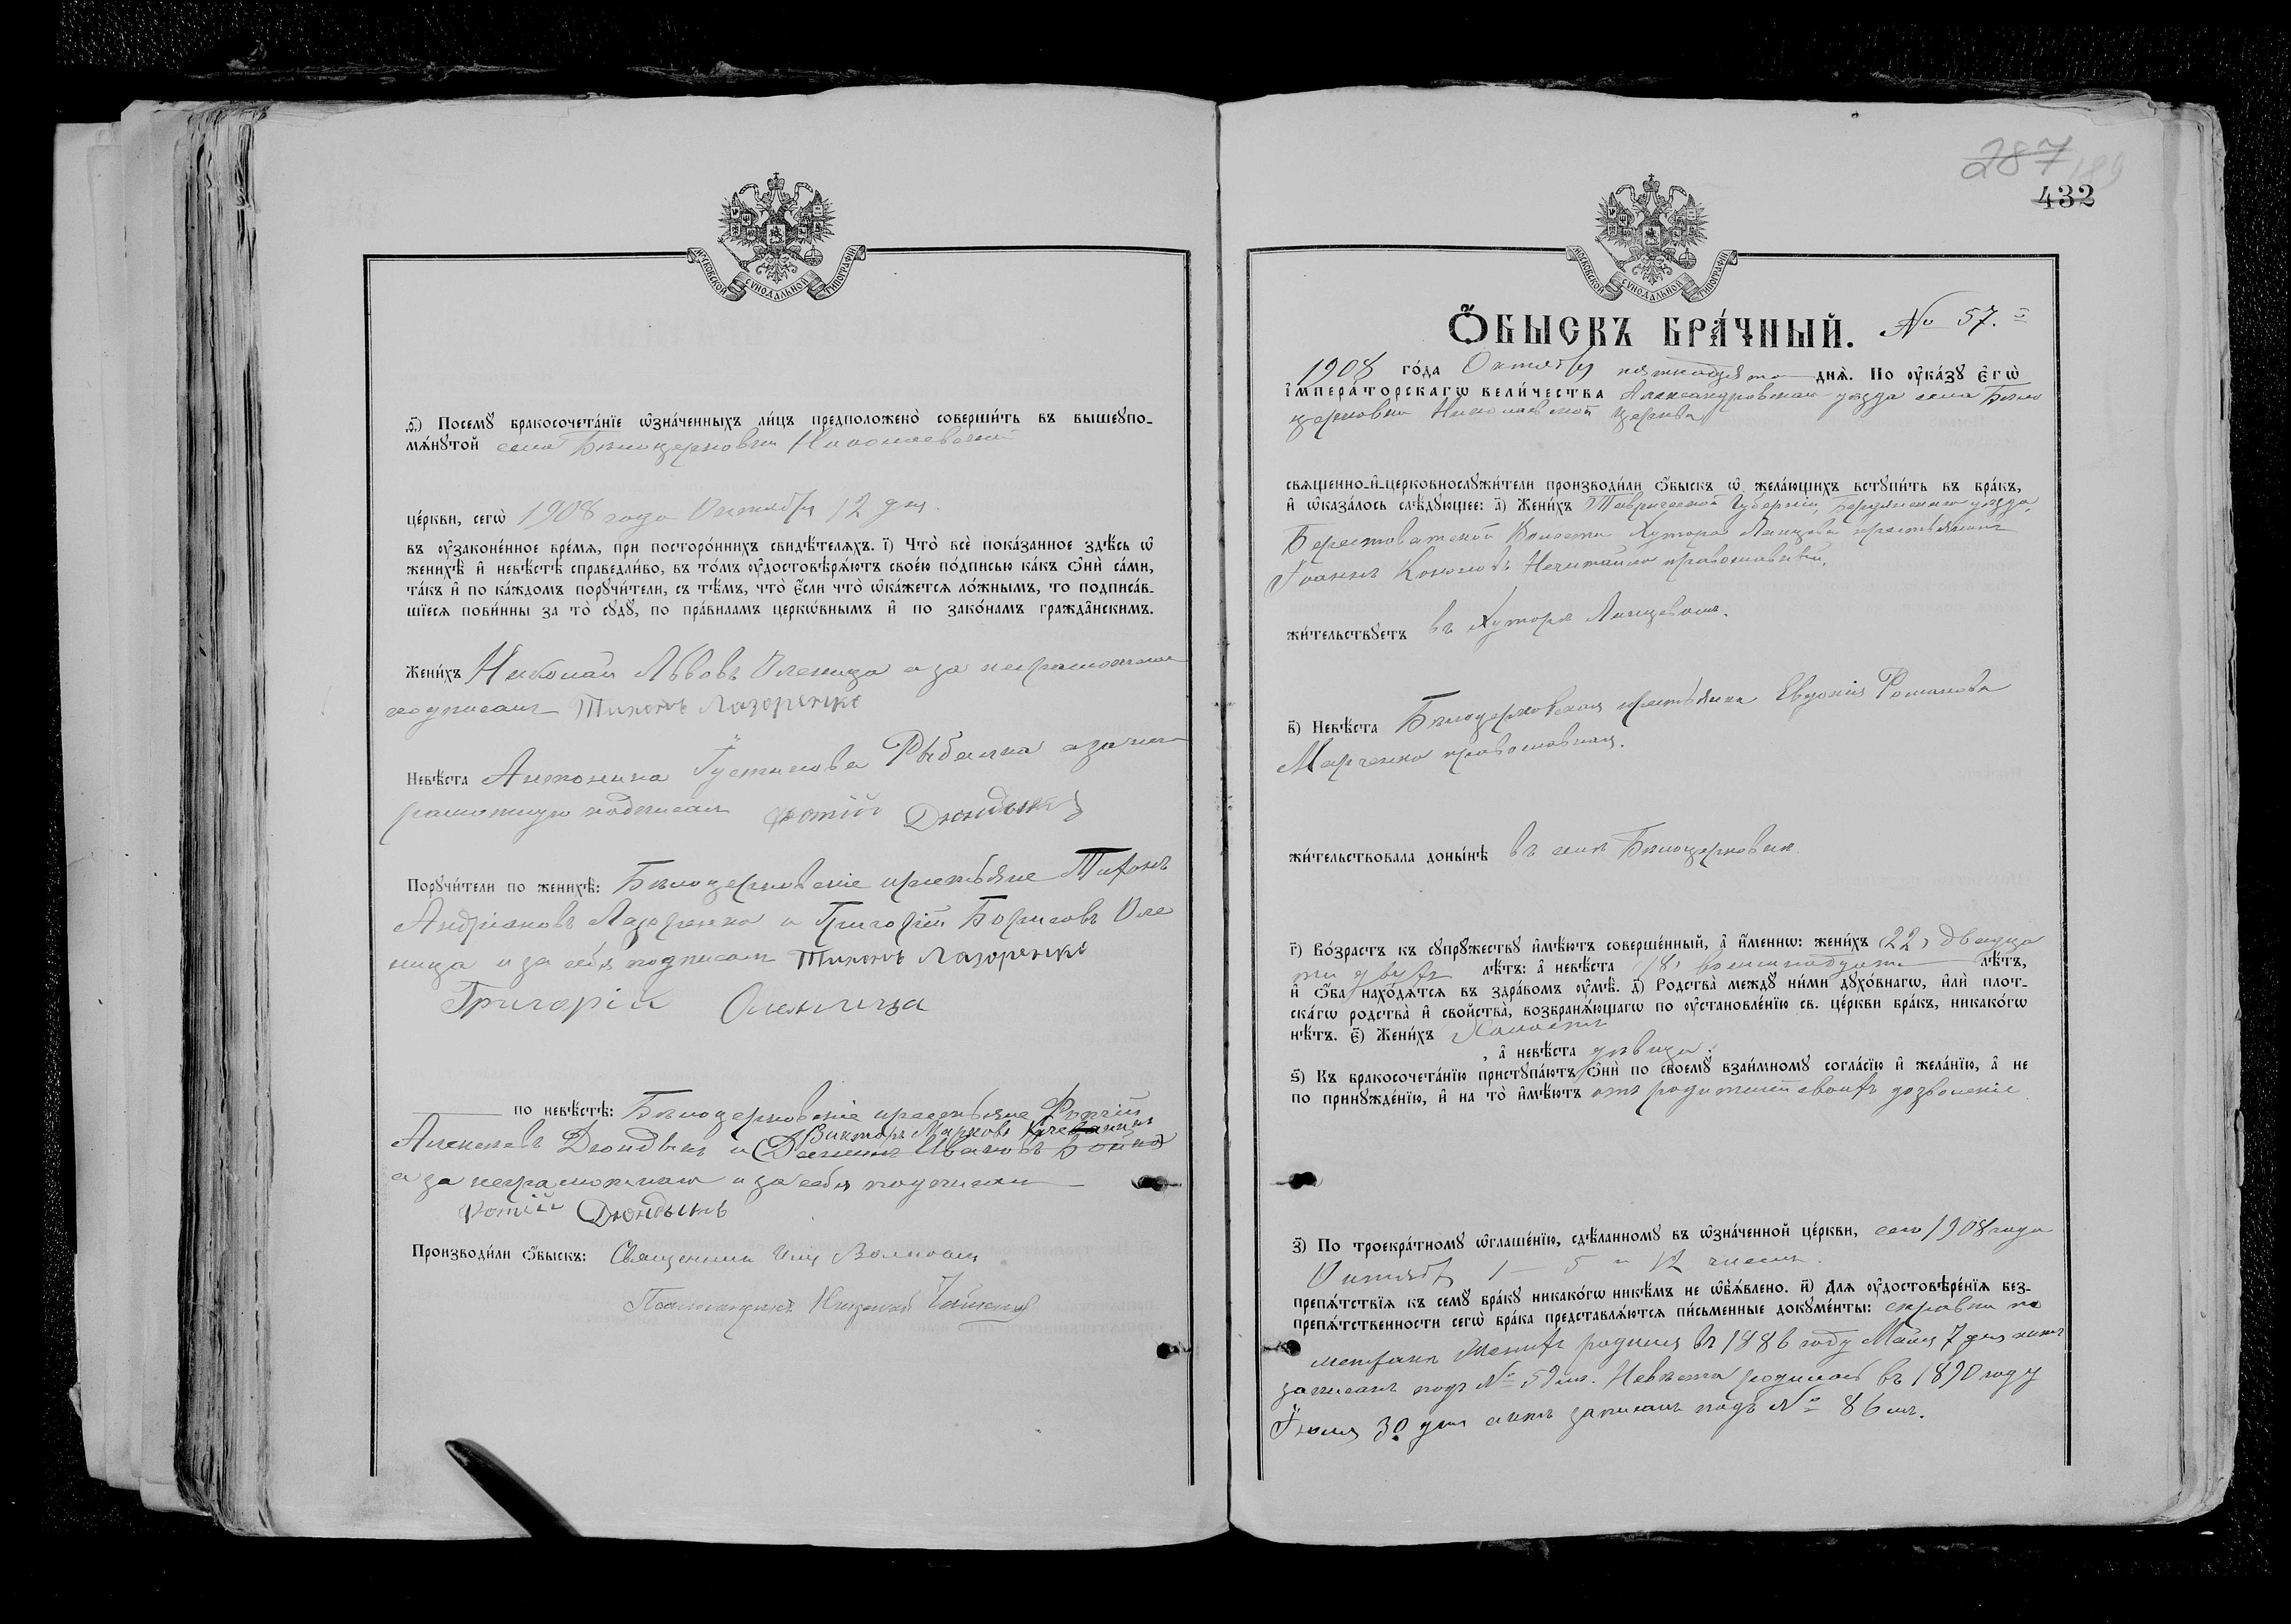 МОСКОВСКОЙ СѴНОДАЛЬНОЙ ТИПОГРАФІИ
ѳ҃) Посемꙋ̀ бракосочета́нїе ѡ҆зна́ченныхъ ли́цъ предположено̀ соверши́ть въ вышеꙋпо-
мѧ́нꙋтой села Бѣлоцерковки Николаевской
це́ркви, сегѡ̀ 1908 года Октября 12 дня.
въ ᲂу҆зако́ненное вре́мѧ, при посторо́ннихъ свидѣ́телѧхъ. і҃) Что̀ всѐ пока́занное здѣ́сь ѡ҆
женихѣ̀ и҆ невѣ́стѣ справедли́во, въ то́мъ ᲂу҆достовѣрѧ́ютъ свое́ю по́дписью ка́къ ѻ҆нѝ са́ми,
та́къ и҆ по ка́ждомъ порꙋчи́тели, съ тѣ́мъ, что̀ є҆́сли что̀ ѡ҆ка́жетсѧ ло́жнымъ, то подписа́в-
шїесѧ пови́нны за то̀ сꙋдꙋ̀, по пра́виламъ церкѡ́внымъ и҆ по зако́намъ гражда̂нскимъ.
Жени́хъ Николай Львовъ Оленица а за неграмотнаго
подписалъ Тихонъ Лазоренко
Невѣ́ста Антонина Іустинова Рыбалка а за нег
рамотную подписал Фотій Дюндыкъ
Порꙋчи́тели по женихѣ̀: Бѣлоцерковскіе крестьяне Тихонъ
Андріановъ Лазоренко и Григорій Борисовъ Оле
ница и за себя подписали Тихонъ Лазоренко
Григорій Оленица
по невѣ́стѣ: Бѣлоцерковскіе крестьяне Фотій
Викторъ Марковъ
Алексѣевъ Дюндыкъ и Ивановъ Бойко
а за неграмотнаго и за себя подписалъ
Фотій Дюндыкъ
Производи́ли ѻ҆́быскъ: Священникъ
Псаломщикъ
287 189
432
МОСКОВСКОЙ СѴНОДАЛЬНОЙ ТИПОГРАФІИ
Ѻ҆́БЫСКЪ БРА́ЧНЫЙ. № 57.й
1908 го́да Октября пятнадцято днѧ̀. По ᲂу҆ка́зꙋ Є҆гѡ̀
І҆мпера́торскагѡ вели́чества Александровскаго уѣзда села Бѣло
церковки Николаевской церкви
свѧщенно-и҆-церковнослꙋжи́тели производи́ли ѻ҆́быскъ ѡ҆ жела́ющихъ встꙋпи́ть въ бра́къ,
и҆ ѡ҆каза́лось слѣ́дꙋющее: а҃) Жени́хъ Таврической Губерніи, Бердянскаго уѣзда,
Берестоватской Волости Хутора Ланцева крестьянинъ
Іоаннъ Кононовъ Нечитайло православный,
жи́тельствꙋетъ въ Хуторе Ланцевомъ.
в҃) Невѣ́ста Бѣлоцерковская крестьянка Евдокія Романова
Марченко православная.
жи́тельствовала доны́нѣ въ селѣ Бѣлоцерковке.
г҃) Во́зрастъ къ сꙋпрꙋ́жествꙋ и҆мѣ́ютъ соверше́нный, а҆ и҆́менно: жени́хъ (22) двадца
ти двухъ лѣ́тъ: а҆ невѣ́ста 18, восемнадцати лѣ́тъ,
и҆ ѻ҆́ба нахо́дѧтсѧ въ здра́вомъ ᲂу҆мѣ̀. д҃) Родства̀ междꙋ ни́ми дꙋхо́внагѡ, и҆лѝ плот-
ска́гѡ родства̀ и҆ сво́йства, возбранѧ́ющагѡ по ᲂу҆становле́нїю св. це́ркви бра́къ, никако́гѡ
нѣ́тъ. є҃) Жени́хъ Холостъ
, а҆ невѣ́ста дѣвица.
ѕ҃) Къ бракосочета́нїю пристꙋпа́ютъ ѻ҆нѝ по своемꙋ̀ взаи́мномꙋ согла́сїю и҆ жела́нїю, а҆ не
по принꙋжде́нїю, и҆ на то̀ и҆мѣ́ютъ отъ родителей своихъ дозволеніе.
з҃) По троекра́тномꙋ ѡ҆глаше́нїю, сдѣ́ланномꙋ въ ѡ҆зна́ченной це́ркви, сего 1908 года
Октября 1 — 5 и 12 чиселъ.
препѧ́тствїѧ къ семꙋ̀ бра́кꙋ никако́гѡ никѣ́мъ не ѡ҆б̾ѧ́влено. и҃) Длѧ ᲂу҆достовѣре́нїѧ без-
препѧ́тственности сегѡ̀ бра́ка представлѧ́ютсѧ пи́сьменные докꙋме́нты: справки по
метрики Женихъ родился въ 1886 году Майя 7 дня актъ
записанъ подъ № 59мъ. Невѣста родилась въ 1890 году
Іюля 30 дня актъ записанъ подъ № 86мъ.